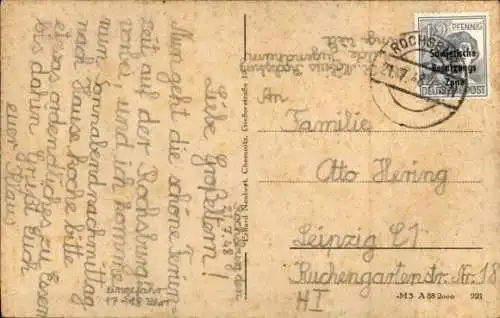 Rochsburg
20.7.48
Liebe Großeltern!
Nun geht die schöne Ferien-
zeit auf der Rochsburg
vorbei, und ich komme
nun Sonnabendnachmittag
nach Hause koche bitte
etwas ordendliches zu Essen
bis dahin Grüßt Euch
euer Klaus
ungefähr
17-18 Uhr
Erhard Neubert, Chemnitz, Gießerstraße
12 PFENNIG
Sowjetische
Besatzungs
Zone
DEUTSCHE POST
ROCHSBURG
21.7.48
An
Familie
Otto Hering
Leipzig C1
Kuchengartenstr. Nr. 18
HI
-M 3 A 88 2000 221